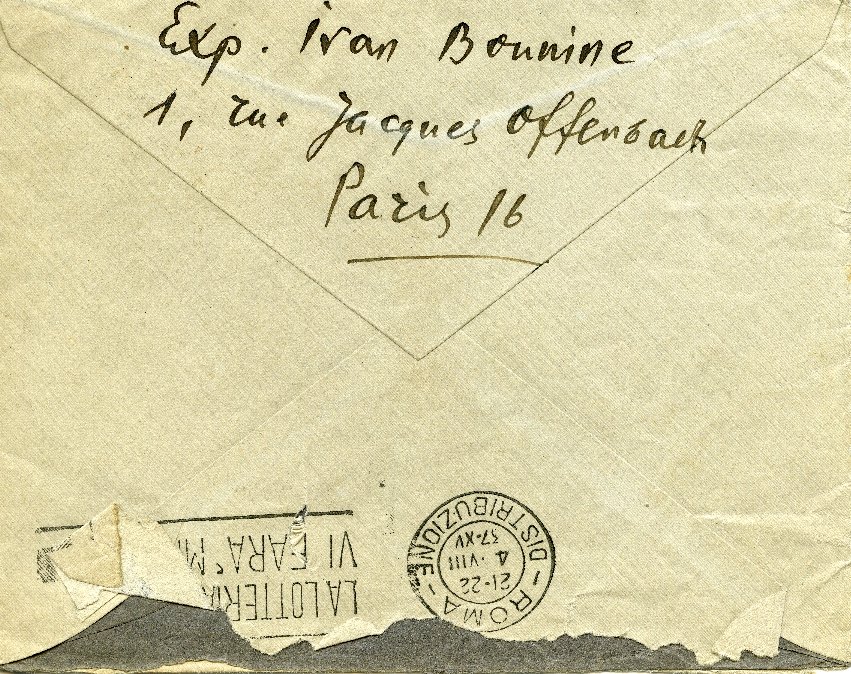 Exp. Ivan Bounine
1, rue Jacques Offenbach
Paris 16
LA LOTTERIA
VI FARA' MI
ROMA
DISTRIBUZIONE
21-22
4·VIII
37-XV